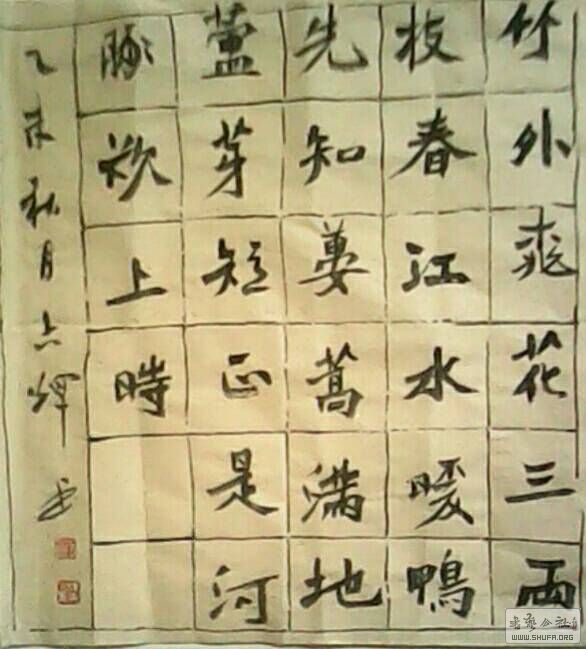 竹外桃花三兩
枝春江水暖鴨
先知蔞蒿滿地
蘆芽短正是河
豚欲上時
乙未秋月志輝書
书法公社
WWW.SHUFA.ORG